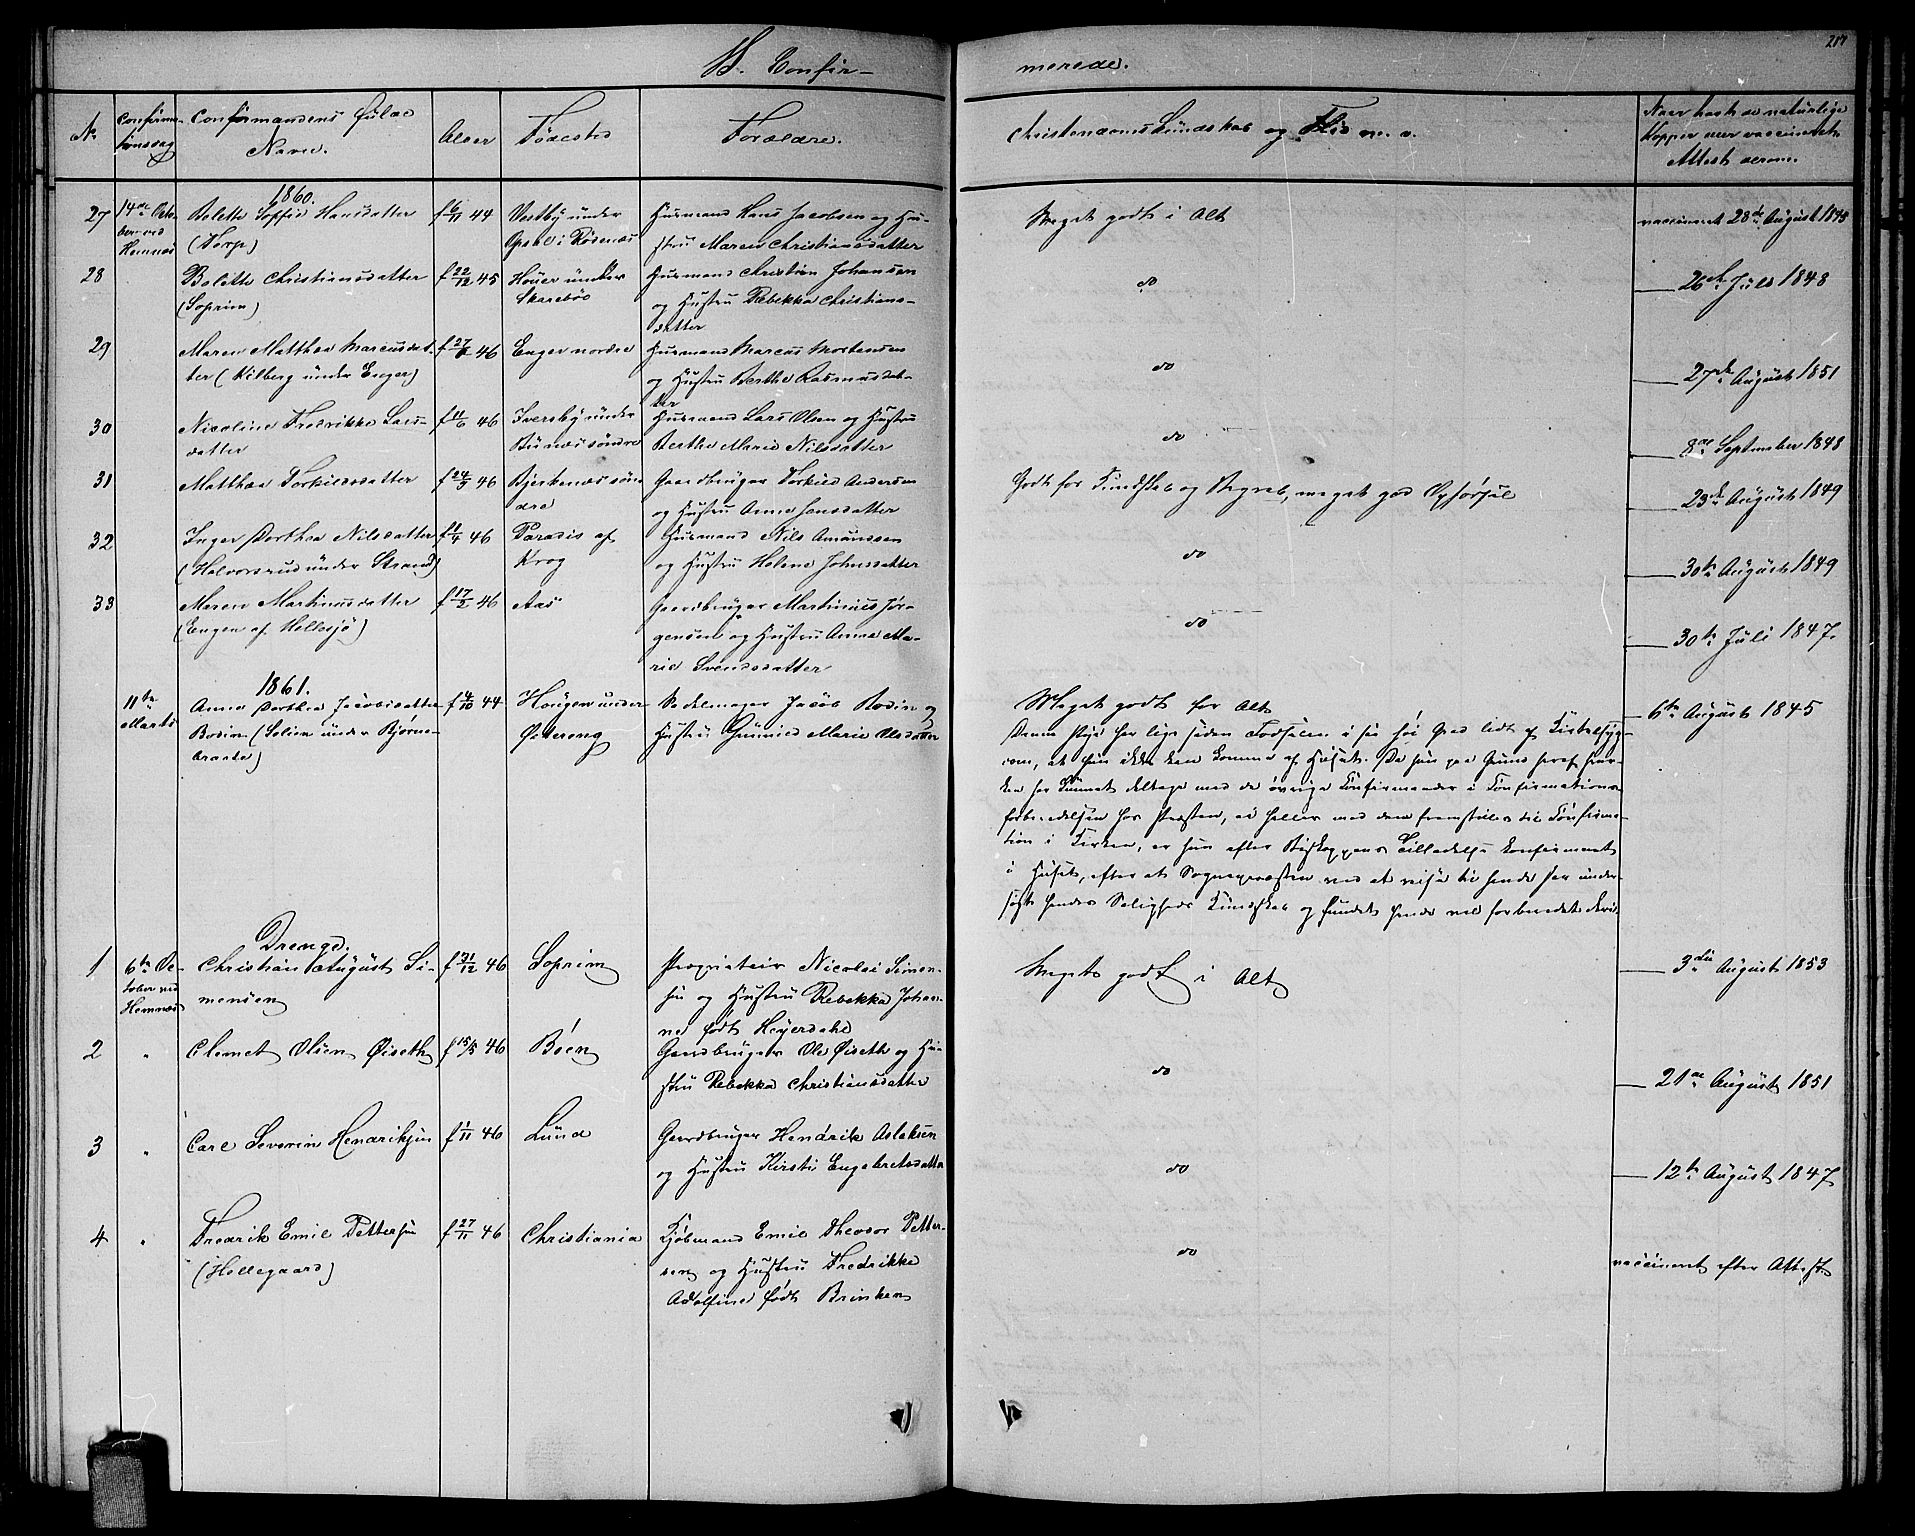 B. Confir-
merede.
217
No
Confirma-
tionsdag
Confirmandens fulde
Navn.
Alder
Fødested
Forældre.
Christendoms Kundskab og Flid m. v.
Naar havt de naturlige
Kopper eller vaccineret
Attest derom.
1860.
27
14de Octo-
ber ved
Hemnæs
Bolette Sophie Hansdatter
(Torp)
f 6/11 44
Vestby under
Opsal i Rødenæs
Husmand Hans Jacobsen og Hu-
stru Maren Christiansdatter
Meget godt i Alt
vaccineret 28de August 1845
28
Bolette Christiansdatter
(Soprim)
f 22/12 45
Houer under
Skarebøe
Husmand Christian Johansen
og Hustru Rebekka Christians-
datter
do
26de Juli 1848
29
Maren Matthea Marcusdat-
ter (Kilberg under Enger)
f 27/8 46
Enger nordre
Husmand Marcus Mortensen
og Hustru Berthe Rasmusdat-
ter
do
27de August 1851
30
Nicoline Fredrikke Lars-
datter
f 11/6 46
Iversby under
Bunæs søndre
Husmand Lars Olsen og Hustru
Berthe Marie Nilsdatter
do
8de September 1848
31
Matthea Torkildsdatter
f 24/9 46
Bjerkenæs søn-
dre
Gaardbruger Torkild Andersen
og Hustru Anne Jensdatter
Godt for Kundskab og Begreb, meget god Opførsel
23de August 1849
32
Inger Dorthea Nilsdatter
(Halvorsrud under Strand)
f 1/4 46
Paradis af
Krog
Husmand Nils Amundsen
og Hustru Helene Johnsdatter
do
30te August 1849
33
Maren Martinusdatter
(Engen af Hellesjø)
f 17/2 46
Aas
Gaardbruger Martinius Jør-
gensen og Hustru Anne Ma-
rie Svendsdatter
do
30te Juli 1847.
1861.
11te
Marts
Anne Dorthea Jacobsdatter
Bodin (Lolien under Bjørne-
braate)
f 4/10 44
Hougen under
Østereng
Sadelmager Jacob Bodin og
Hustru Gunnild Marie Olsdatter
Meget godt for Alt
Denne Pige har lige siden Fødselen i saa høi Grad lidt af Kirtelsyg-
dom, at hun ikke kan komme af Huset. Da hun paa Grund heraf hver-
ken har kunnet deltage med de øvrige Confirmander i Confirmations-
forberedelsen hos Præsten, ei heller med dem fremstilles til Confirma-
tion i Kirken, er hun efter Biskoppens Tilladelse konfirmeret
i Huset, efter at Sognepræsten ved at reise til hende har under-
søgt hendes Saligheds Kundskab og fundet hende vel forberedet dertil.
6te August 1845
Drenge.
1
6te Oc-
tober ved
Hemnæs
Christian August Si-
mensen
f 31/12 46
Soprim
Proprietair Nicolai Simen-
sen og Hustru Rebekka Johan-
ne født Heyerdahl
Meget godt i Alt
3die August 1853
2
"
Clemet Olsen Øiseth
f 15/5 46
Bøen
Gaardbruger Ole Øiseth og Hu-
stru Rebekka Christiansdatter
do
21de August 1851
3
"
Carl Severin Hendriksen
f 1/11 46
Lund
Gaardbruger Hendrik Aslaksen
og Hustru Kirsti Engebretsdatter
do
12te August 1847
4
"
Fredrik Emil Pettersen
(Hellegaard)
f 27/11 46
Christiania
Kjøbmand Emil Theodor Petter-
sen og Hustru Fredrikke
Adolfine født Brinken
do
vaccineret efter Attest